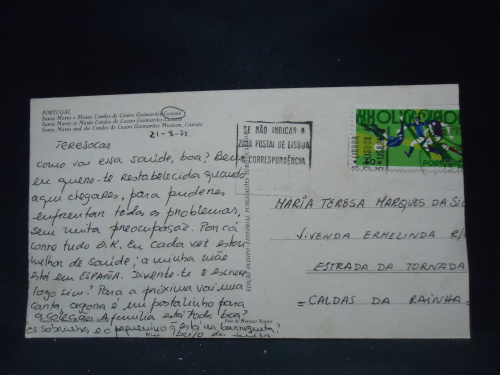 PORTUGAL
Santa Marta e Museu Condes de Castro Guimarães, Cascais
Santa Marta et Musée Condes de Castro Guimarães, Cascais
Santa Marta and the Condes de Castro Guimarães Museum, Cascais
21-8-72
Teresocas
como vai essa saúde, boa? Bem
eu quero-te restabelecida quando
aqui chegares, para puderes
enfrentar todos os problemas,
sem muita preocupação. Por cá
corre tudo O.K. Eu cada vez estou
melhor de saúde; a minha mãe
está em ESPAÑA. Diverte-te e escreve
logo sim? Para a próxima vai uma
carta, agora é um postalinho para
a coleção. A família está toda boa?
os sobrinhos e o pequenino q estava
um beijo da
SE NÃO INDICAR A
ZONA POSTAL DE LISBOA
A CORRESPONDÊNCIA
XX OLIMPIADA
PORTUGAL
MARIA TERESA MARQUES DA SIL
VIVENDA ERMELINDA R/C
ESTRADA DA TORNADA
=CALDAS DA RAINHA=